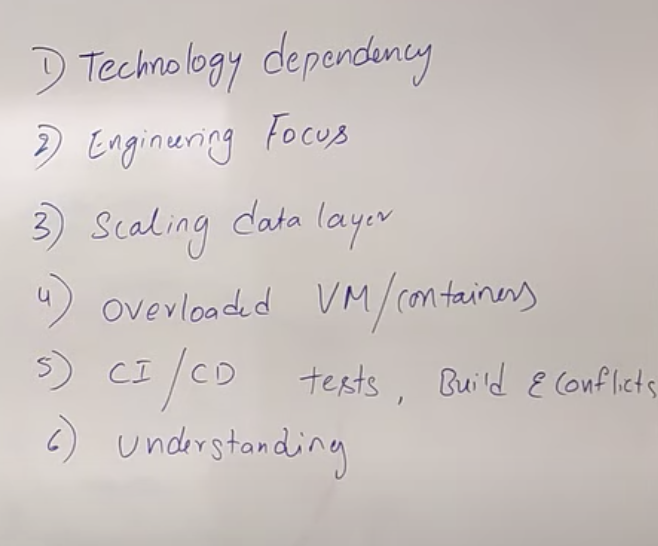 1) Technology dependency
2) Engineering Focus
3) Scaling data layer
4) Overloaded VM/containers
5) CI/CD tests, Build & Conflicts
6) Understanding